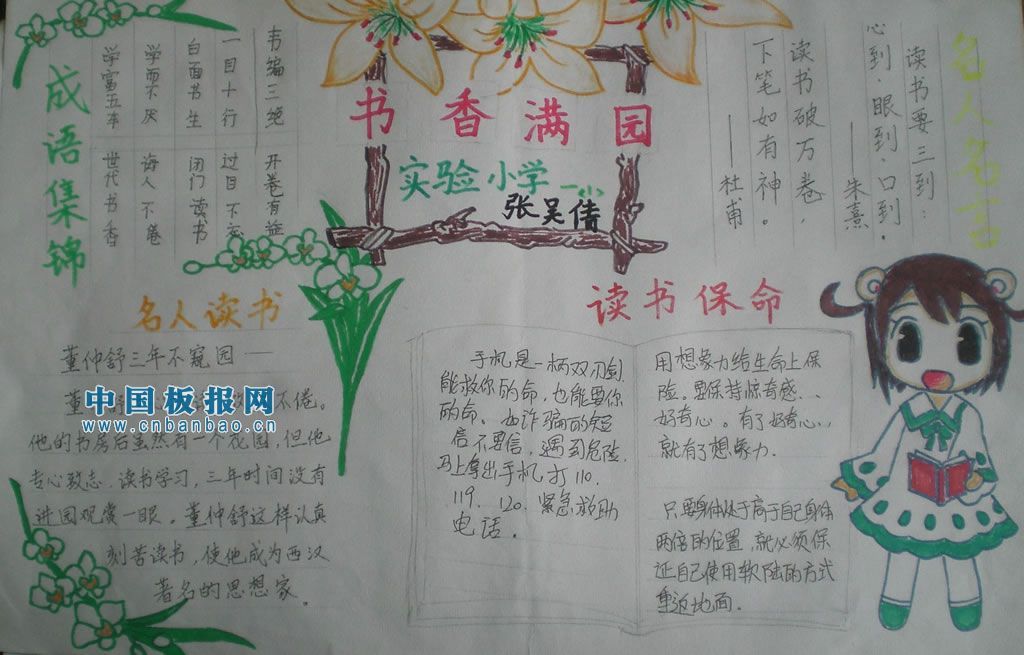 书香满园
实验小学
张吴倩
成语集锦
韦编三绝 开卷有益
一目十行 过目不忘
白面书生 闭门读书
学而不厌 诲人不倦
学富五车 世代书香
名人名言
读书要三到：
心到·眼到·口到·
——朱熹
读书破万卷，
下笔如有神。
——杜甫
名人读书
董仲舒三年不窥园——
董
不倦。
他的书房后虽然有一个花园，但他
专心致志，读书学习，三年时间没有
进园观赏一眼。董仲舒这样认真
刻苦读书，使他成为西汉
著名的思想家。
中国板报网
www.cnbanbao.cn
读书保命
手机是一柄双刃剑，
能救你的命，也能要你
的命。诈骗的短
信不要信，遇到危险，
马上拿出手机，打110.
119、120、紧急救助
电话。
用想象力给生命上保
险。要保持惊奇感、、
好奇心。有了好奇心、、
就有了想象力.
只要身体处于高于自己身体
两倍的位置，就必须保
证自己使用软陆的方式
重返地面.